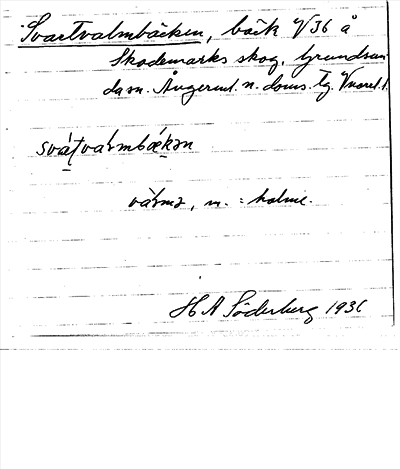 Svartvalmbäcken, bäck 4/36 å
Skademarks skog, Grundsun
da sn. Ångerml. n. doms. tg. Vnorrl. l.
svátvármbækən
vàrmə, m. = holme.
H A Söderberg 1936